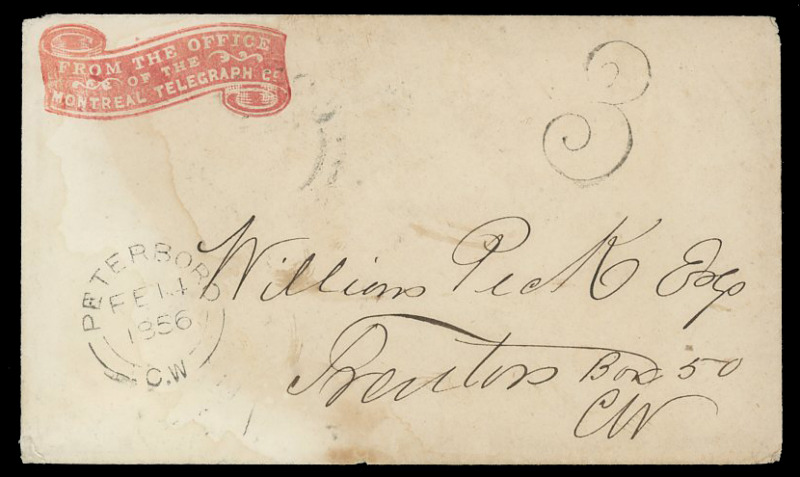 FROM THE OFFICE
OF THE
MONTREAL TELEGRAPH Co
3
PETERBORO
FE 14
1856
C.W
William Peck Esq
Trenton Box 50
CW